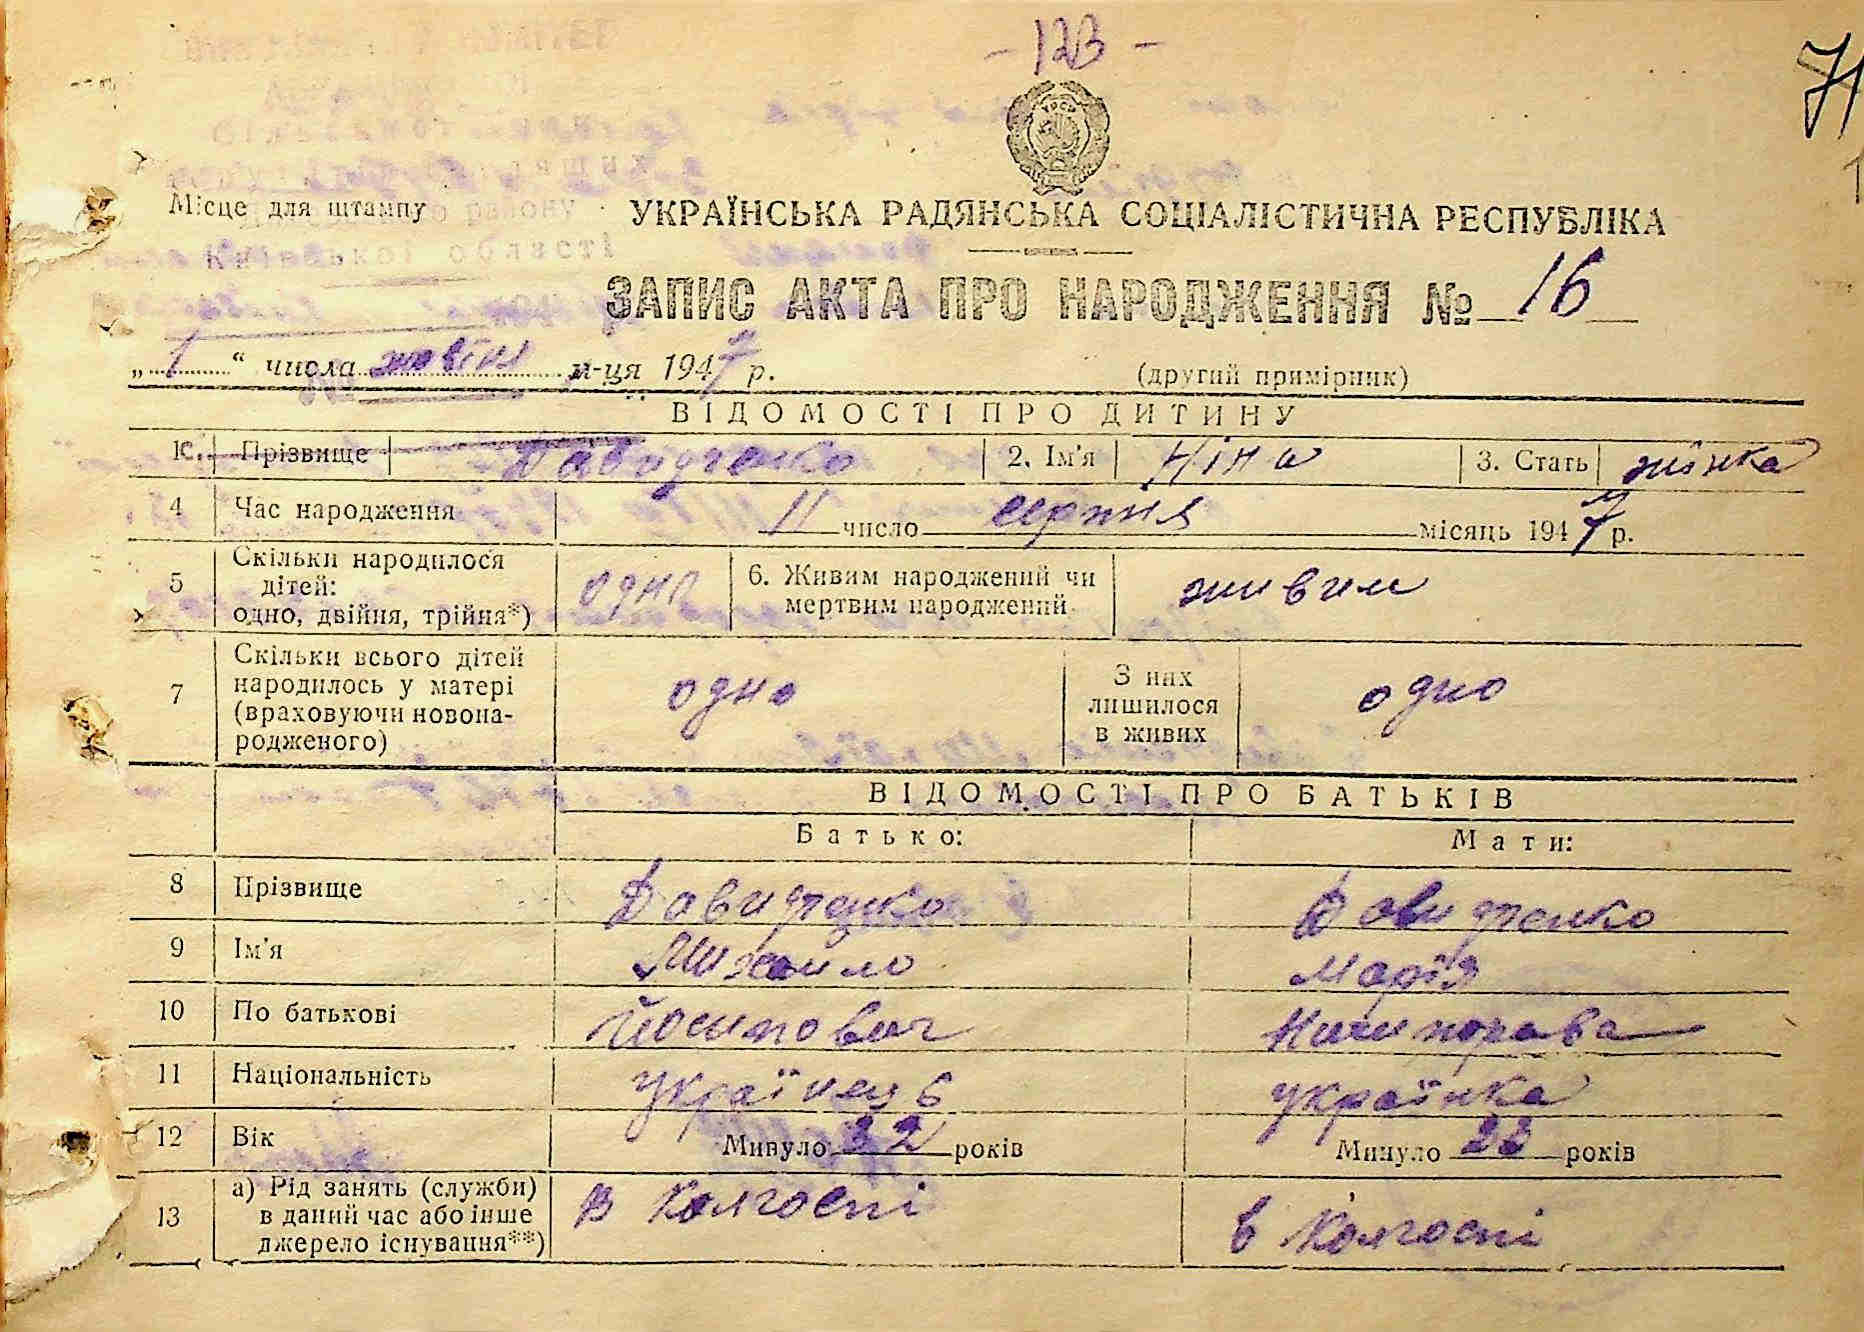 - 123 -
71
УРСР
Місце для штампу
Київської області
УКРАЇНСЬКА РАДЯНСЬКА СОЦІАЛІСТИЧНА РЕСПУБЛІКА
ЗАПИС АКТА ПРО НАРОДЖЕННЯ № 16
„ 1 “ числа жовтня м-ця 1947 р. (другий примірник)
ВІДОМОСТІ ПРО ДИТИНУ
1. Прізвище Давидченко 2. Ім'я Ніна 3. Стать жінка
4 Час народження 11 число серпня місяць 1947 р.
5 Скільки народилося
дітей:
одно, двійня, трійня*) одно 6. Живим народжений чи
мертвим народжений живим
7 Скільки всього дітей
народилось у матері
(враховуючи новона-
родженого) одно З них
лишилося
в живих одно
ВІДОМОСТІ ПРО БАТЬКІВ
Батько: Мати:
8 Прізвище Давидченко Давидченко
9 Ім'я Михайло Марія
10 По батькові Йосипович Ничипорова
11 Національність українець українка
12 Вік Минуло 32 років Минуло 23 років
13 а) Рід занять (служби)
в даний час або інше
джерело існування**) в колгоспі в колгоспі